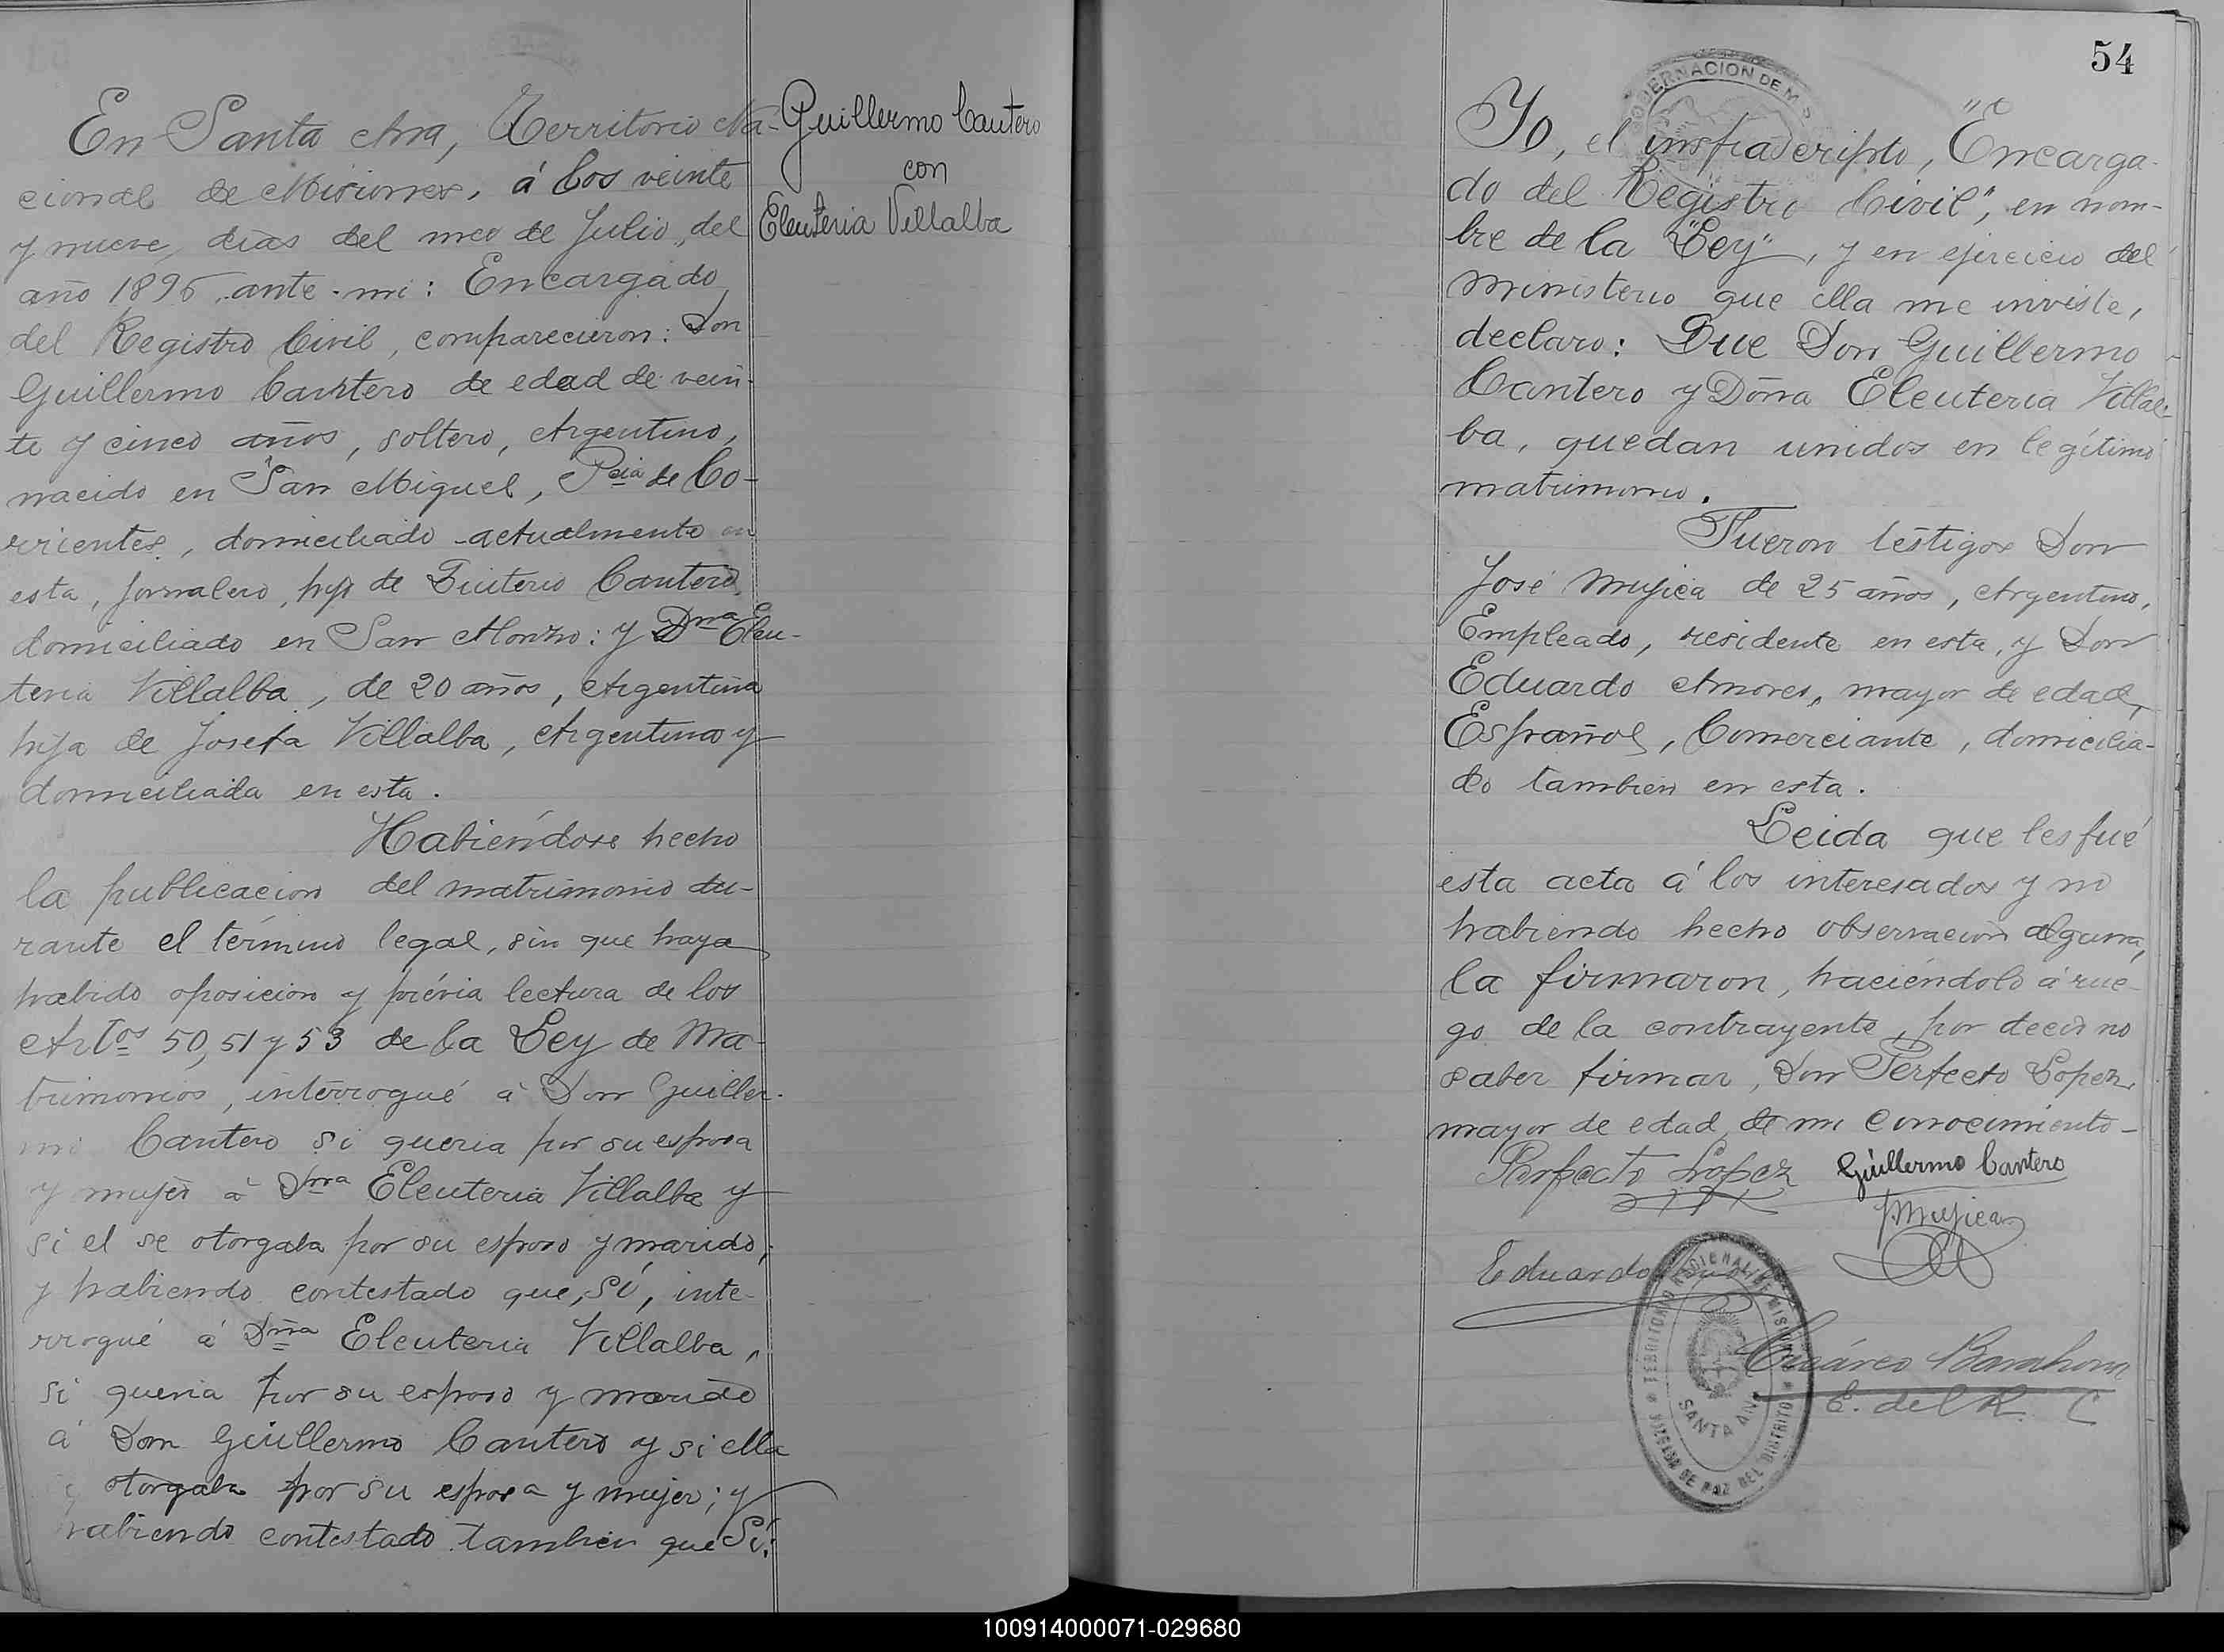 En Santa Ana, Territorio Na-
cional de Misiones, á los veinte
y nueve, dias del mes de Julio, del
año 1896, ante mi: Encargado
del Registro Civil, comparecieron: Don
Guillermo Cantero de edad de vein-
te y cinco años, soltero, Argentino,
nacido en San Miguel, Pcia de Co-
rrientes, domiciliado actualmente en
esta, jornalero, hijo de Cantero,
domiciliado en San Alonzo: y Dña Eleu-
teria Villalba, de 20 años, Argentina
hija de Josefa Villalba, Argentina y
domiciliada en esta.
Habiéndose hecho
la publicacion del matrimonio du-
rante el término legal, sin que haya
habido oposicion y prévia lectura de los
Artos 50, 51 y 53 de la Ley de Ma-
trimonios, interrogué á Don Guiller-
mo Cantero si queria por su esposa
y mujer á Dña Eleuteria Villalba y
si el se otorgaba por su esposo y marido,
y habiendo contestado que, Sí, inte-
rrogué á Dña Eleuteria Villalba,
si queria por su esposo y marido
á Don Guillermo Cantero y si ella
otorgaba por su esposa y mujer; y
habiendo contestado tambien que Sí:
Guillermo Cantero
con
Eleuteria Villalba
54
GOBERNACION DE MIS
Yo, el infradcripto, "Encarga-
do del Registro Civil", en nom-
bre de la "Ley", y en ejercicio del
ministerio que ella me inviste,
declaro: Que Don Guillermo
Cantero y Doña Eleuteria Villal-
ba, quedan unidos en legítimo
matrimonio.
Fueron testigos Don
José Mujica de 25 años, Argentino,
Empleado, residente en esta, y Don
Eduardo Amores, mayor de edad,
Español, Comerciante, domicilia-
do tambien en esta.
Leida que les fué
esta acta á los interesados y no
habiendo hecho observacion alguna,
la firmaron, haciéndolo á rue-
go de la contrayente, por decir no
saber firmar, Don Perfecto Lopez,
mayor de edad, de mi conocimiento-
Perfecto Lopez Guillermo Cantero
J. Mujica
Eduardo
TERRITORIO NACIONAL DE MISIONES
SANTA ANA
JUZGADO DE PAZ DEL DISTRITO
E. del R. C
100914000071-029680